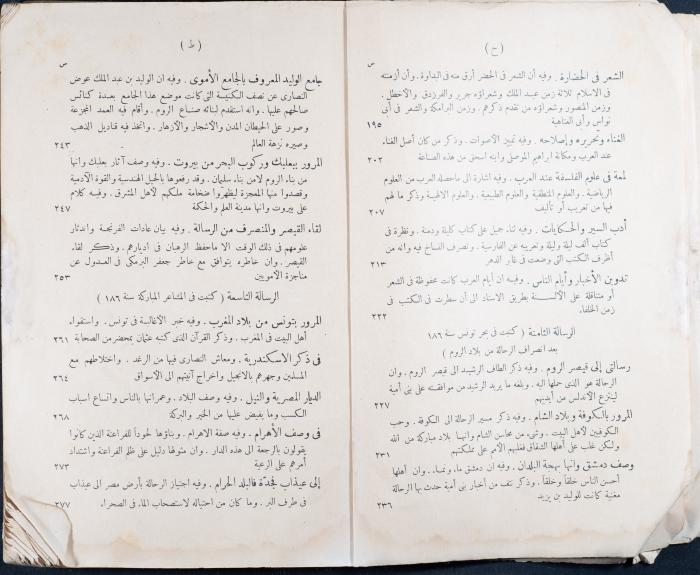 ( ح )
ص
الشعر فى الحضارة . وفيه أن الشعر فى الحضر أرق منه فى البداوة . وأن أزمنته
فى الاسلام ثلاثة زمن عبد الملك وشعراؤه جرير والفرزدق والاخطل .
وزمن المنصور وشعراؤه من تقدم ذكرهم . وزمن البرامكة والشعر فى أبى
نواس وأبى العتاهية ١٩٥
الغناء وتحريره وإصلاحه . وفيه تمييز الاصوات . وذكر من كان أصل الغناء
عند العرب ومكانة ابراهيم الموصلى وابنه اسحق من هذه الصناعة ٢٠٢
لمعة فى علوم الفلسفة عند العرب . وفيه اشارة الى ماحصله العرب من العلوم
الرياضية . والعلوم المنطقية والعلوم الطبيعية . والعلوم الالهية وذكر ما لهم
فيها من تعريب أو تأليف ٢٠٧
أدب السير والحكايات . وفيه ثناء جميل على كتاب كليلة ودمنة . ونظرة فى
كتاب ألف ليلة وليلة وتعريبه عن الفارسية . وتصرف النساخ فيه وانه من
أظرف الكتب التى وضعت فى غابر الدهر ٢١٣
تدوين الأخبار وأيام الناس . وفيه ان أيام العرب كانت محفوظة فى الشعر
أو متناقلة على الألسنة بطريق الاسناد الى أن سطرت فى الكتب فى
زمن الخلفاء ٢٢٢
الرسالة الثامنة ( كتبت فى بحر تونس سنة ١٨٦
بعد انصراف الرحالة من بلاد الروم )
رسالتى إلى قيصر الروم . وفيه ذكر الطاف الرشيد الى قيصر الروم . وان
الرحالة هو الذى حملها اليه . وبلغه ما يريد الرشيد من موافقته على بنى أمية
لينتزع الاندلس من أيديهم ٢٢٧
المرور بالكوفة وبلاد الشام . وفيه ذكر مسير الرحالة الى الكوفة . وحب
الكوفيين لاهل البيت . وشىء من محاسن الشام وانها بلاد مباركة من الله
ولكن غلب على أهلها الشقاق فغلبهم الأمم على تملكتهم ٢٣١
وصف دمشق وانها بهجة البلدان . وفيه ان دمشق ماء ونماء . وان أهلها
أحسن الناس خلقاً وخلقاً . وذكر نتف من أخبار بنى أمية حدث بها الرحالة
مغنية كانت للوليد بن يزيد ٢٣٦
( ط )
ص
جامع الوليد المعروف بالجامع الأموى . وفيه ان الوليد بن عبد الملك عوض
النصارى عن نصف الكنيسة التى كانت موضع هذا الجامع بعدة كنائس
صالحهم عليها . وانه استقدم لبنائه صناع الروم . وأقام فيه العمد المجزعة
وصور على الحيطان المدن والاشجار والازهار . واتخذ فيه قناديل الذهب
وصيره نزهة العالم ٢٤٣
المرور ببعلبك وركوب البحر من بيروت . وفيه وصف آثار بعلبك وانها
من بناء الروم لامن بناء سليمان . وقد رفعوها بالحيل الهندسية والقوة الآدمية
وقصدوا منها المعجزة ليظهروا ضخامة ملكهم لاهل المشرق . وفيه كلام
على بيروت وانها مدينة العلم والحكمة ٢٤٧
لقاء القيصر والمنصرف من الرسالة . وفيه بيان عادات الفرنجة واندثار
علومهم فى ذلك الوقت الا ماحفظ الرهبان فى اديارهم . وذكر لقاء
القيصر . وان خاطره يتوافق مع خاطر جعفر البرمكى فى العدول عن
مناجزة الامويين ٢٥٣
الرسالة التاسعة ( كتبت فى المشاعر المباركة سنة ١٨٦ )
المرور بتونس من بلاد المغرب . وفيه خبر الاغالبة فى تونس . واستقواء
أهل البيت فى المغرب . وذكر القرآن الذى كتبه عثمان بمحضر من الصحابة ٢٦١
فى ذكر الاسكندرية . ومعاش النصارى فيها من الرغد . واختلاطهم مع
المسلمين وجهرهم بالانجيل واخراج آنيتهم الى الاسواق ٢٦٤
الديار المصرية والنيل . وفيه وصف البلاد . وعمرانها بالناس واتساع اسباب
الكسب وما يفيض عليها من الخير والبركة ٢٦٨
فى وصف الأهرام . وفيه صفة الاهرام . وبناؤها لحوداً للفراعنة الذين كانوا
يقولون بالرجعة الى هذه الدار . وان مثولها دليل على ظلم الفراعنة واشتداد
أمرهم على الرعية ٢٧٣
إلى عيذاب فجدة فالبلد الحرام . وفيه اجتياز الرحالة بأرض مصر الى عيذاب
فى طرف البر . وما كان من احتياله لاستصحاب الماء فى الصحراء . ٢٧٧